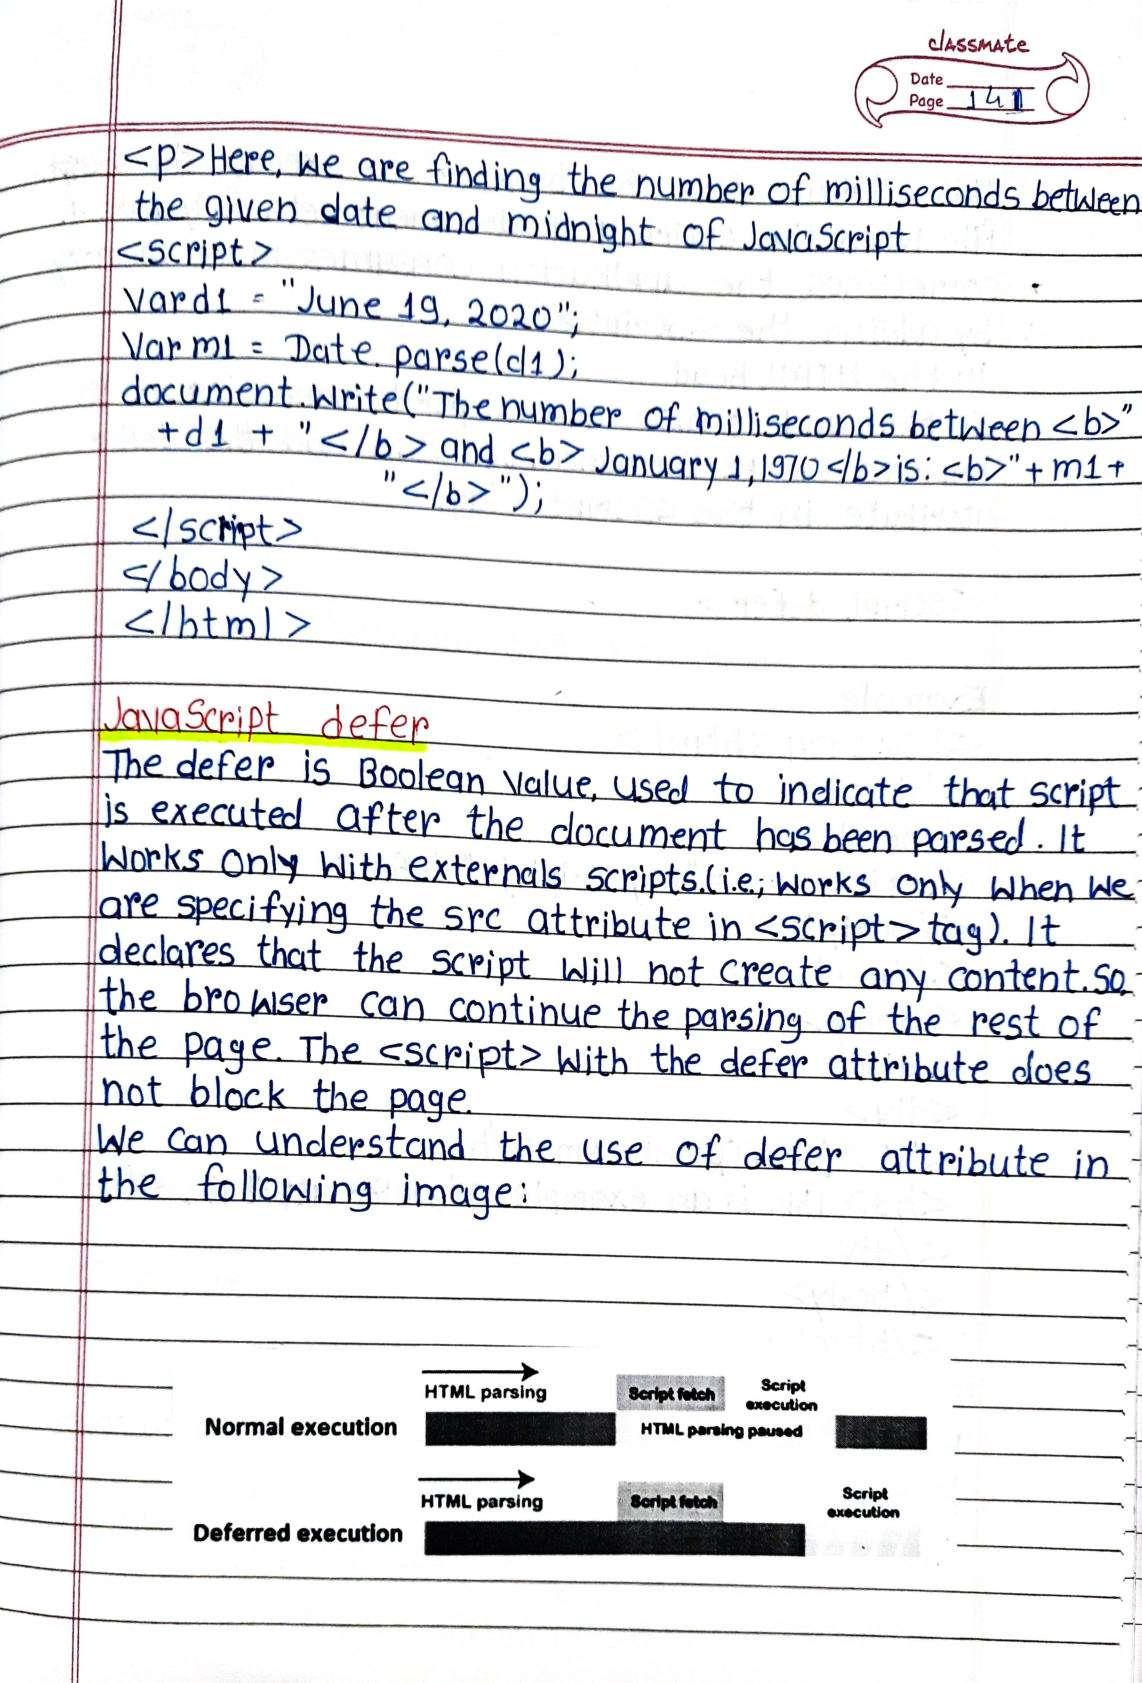 classmate
Date
Page 141
<p>Here, we are finding the number of milliseconds between
the given date and midnight of JavaScript
<script>
Var d1 = "June 19, 2020";
Var m1 = Date.parse(d1);
document.write("The number of milliseconds between <b>"
+d1 + "</b> and <b> January 1, 1970</b>is: <b>"+ m1+
"</b>");
</script>
</body>
</html>
JavaScript defer
The defer is Boolean value, used to indicate that script
is executed after the document has been parsed. It
works only with externals scripts.(i.e; works only when we
are specifying the src attribute in <script> tag). It
declares that the script will not create any content. So
the browser can continue the parsing of the rest of
the page. The <script> with the defer attribute does
not block the page.
We can understand the use of defer attribute in
the following image:
HTML parsing Script fetch Script
execution
Normal execution HTML parsing paused
HTML parsing Script fetch Script
execution
Deferred execution